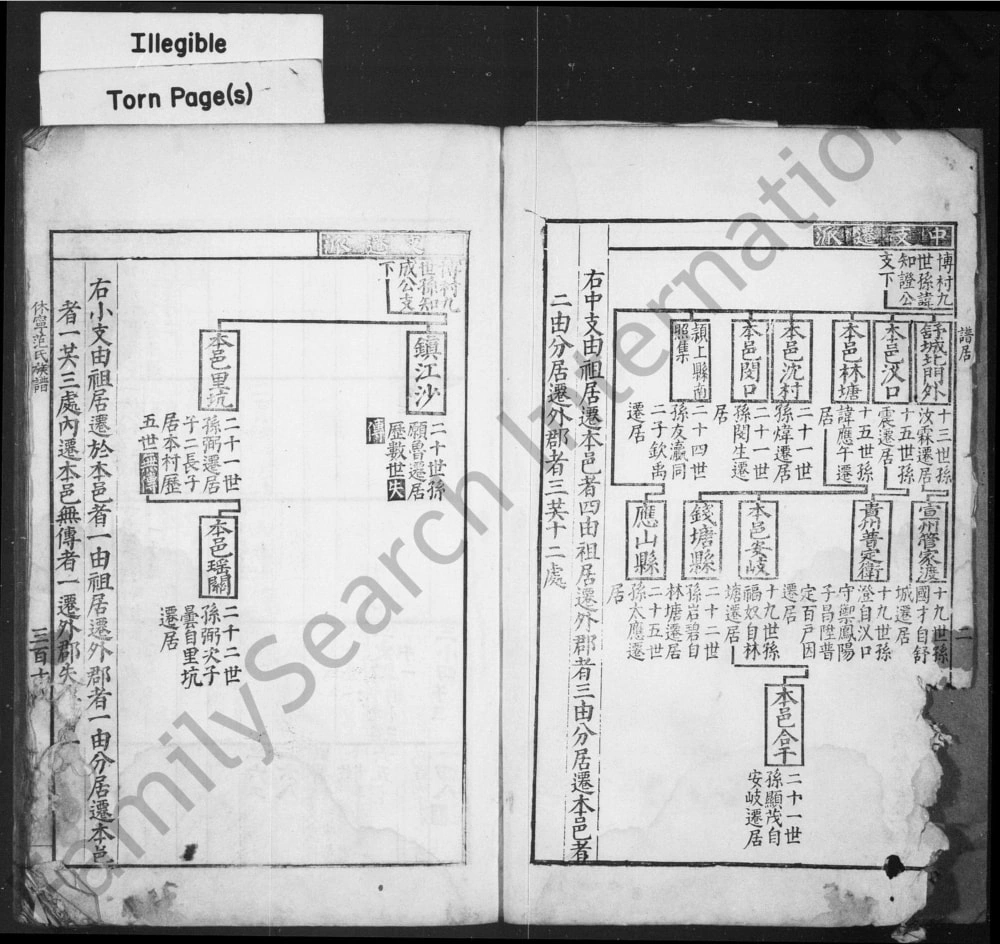 Illegible
Torn Page(s)
中支遷派
博村九
世孫諱
知證公
支下
舒城北門外
十三世孫
汝霖遷居
本邑汊口
十五世孫
震遷居
本邑林塘
十五世孫
諱應午遷
居
本邑沈村
二十一世
孫煒遷居
本邑閔口
二十一世
孫閔生遷
居
潁上縣南
照集
二十四世
孫友瀛同
二子欽禹
遷居
宣州管家渡
十九世孫
國才自舒
城遷居
貴州普定衛
十九世孫
澄自汊口
守禦鳳陽
子昌陞普
定百戶因
遷居
本邑安岐
十九世孫
福奴自林
塘遷居
錢塘縣
二十二世
孫岩碧自
林塘遷居
應山縣
二十五世
孫太應遷
居
本邑合干
二十一世
孫顯茂自
安岐遷居
右中支由祖居遷本邑者四由祖居遷外郡者三由分居遷本邑者
二由分居遷外郡者三共十二處
譜居
二
支遷派
博村九
世孫知
成公支
下
鎮江沙
二十世孫
願曾遷居
歷數世失
傳
本邑里坑
二十一世
孫弼遷居
子二長子
居本村歷
五世無傳
本邑瑶關
二十二世
孫弼次子
曇自里坑
遷居
右小支由祖居遷於本邑者一由祖居遷外郡者一由分居遷本邑
者一共三處內遷本邑無傳者一遷外郡失
休寧范氏族譜
三百十
FamilySearch International